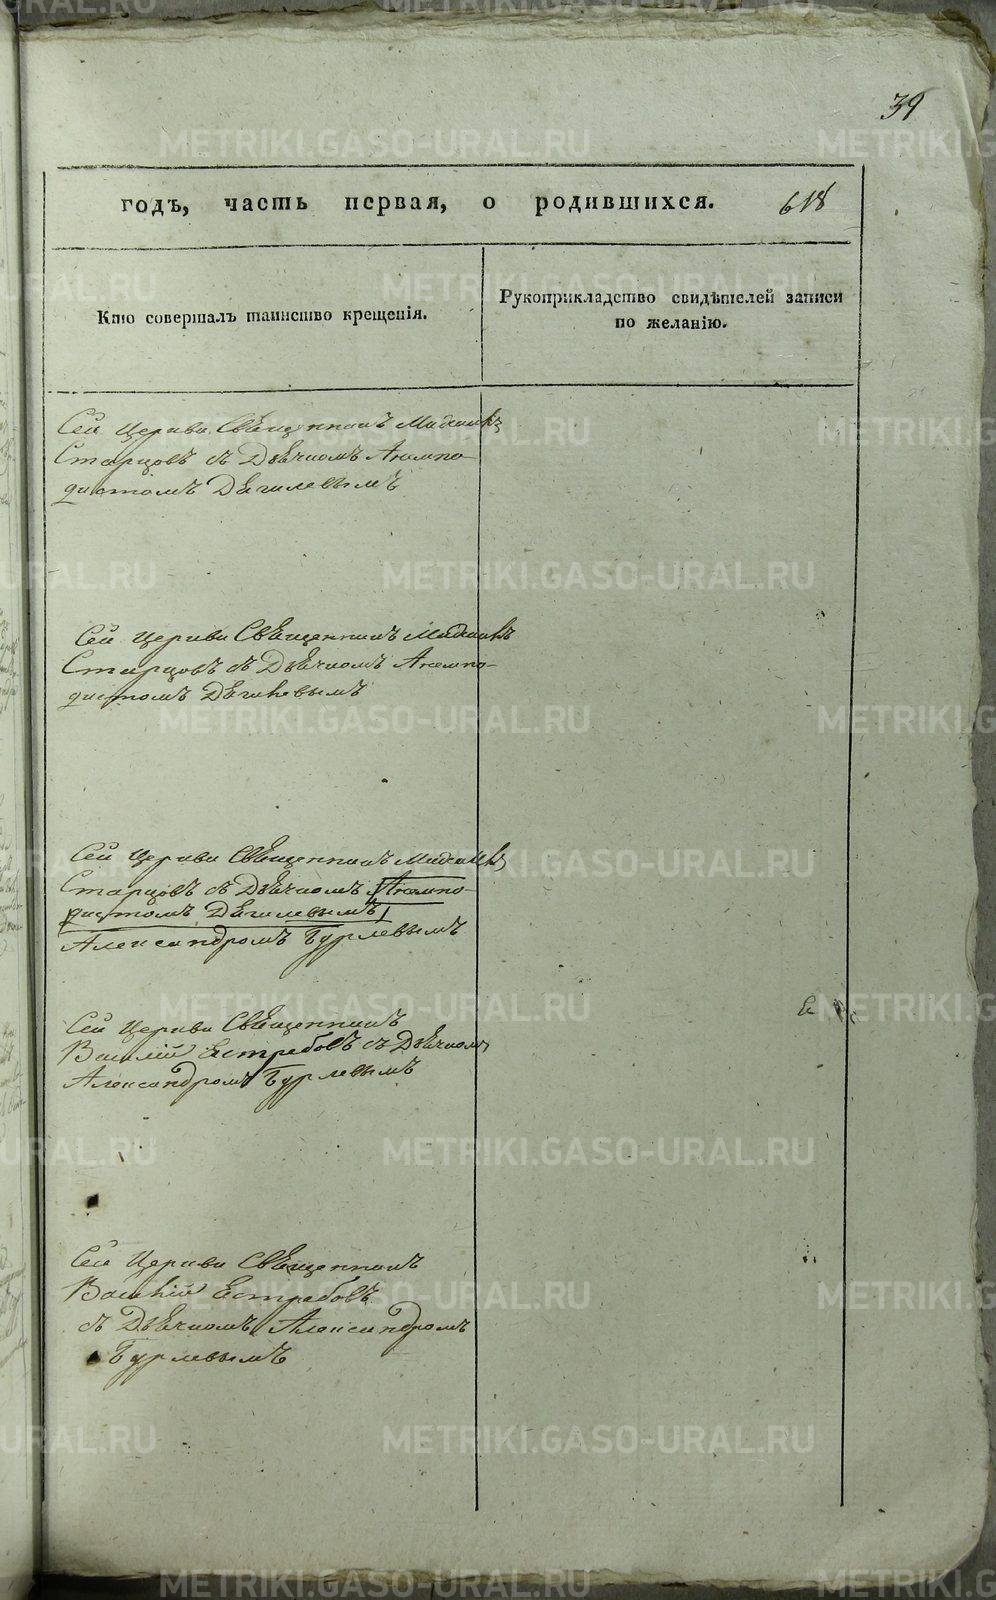 39
годъ, часть первая, о родившихся. 618
Кто совершалъ таинство крещенія.
Рукоприкладство свидѣтелей записи
по желанію.
Сей Церкви Священникъ Михаилъ
Старцовъ съ Дьячкомъ Анемпо-
дистомъ Дѣгилевымъ
Сей Церкви Священникъ Михаилъ
Старцовъ съ Дьячкомъ Анемпо-
дистомъ Дѣгилевымъ
Сей Церкви Священникъ Михаилъ
Старцовъ съ Дьячкомъ Анемпо-
дистомъ Дѣгилевымъ
Александромъ Бурлевымъ
Сей Церкви Священникъ
Василій Естребовъ съ Дьячкомъ
Александромъ Бурлевымъ
Сей Церкви Священникъ
Василій Естребовъ
съ Дьячкомъ Александромъ
Бурлевымъ
METRIKI.GASO-URAL.RU